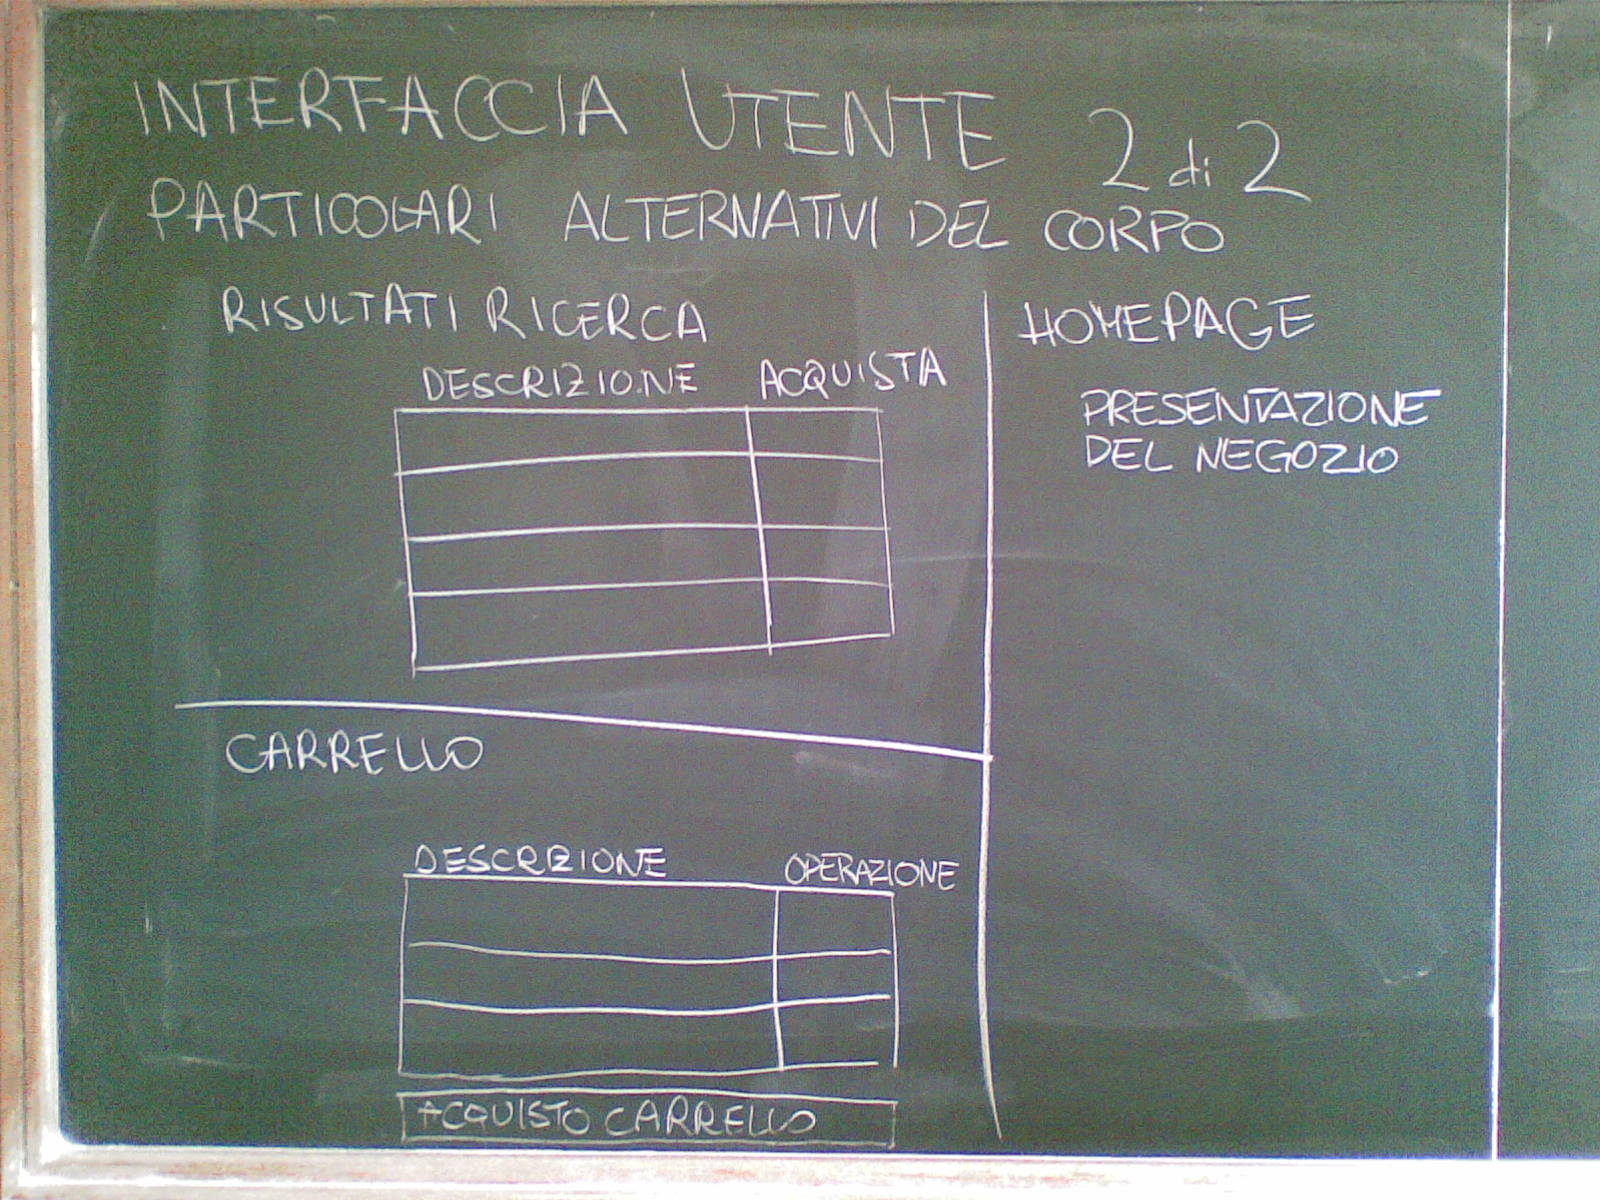 INTERFACCIA UTENTE 2 di 2
PARTICOLARI ALTERNATIVI DEL CORPO
RISULTATI RICERCA
DESCRIZIONE ACQUISTA
CARRELLO
DESCRIZIONE OPERAZIONE
ACQUISTO CARRELLO
HOMEPAGE
PRESENTAZIONE
DEL NEGOZIO